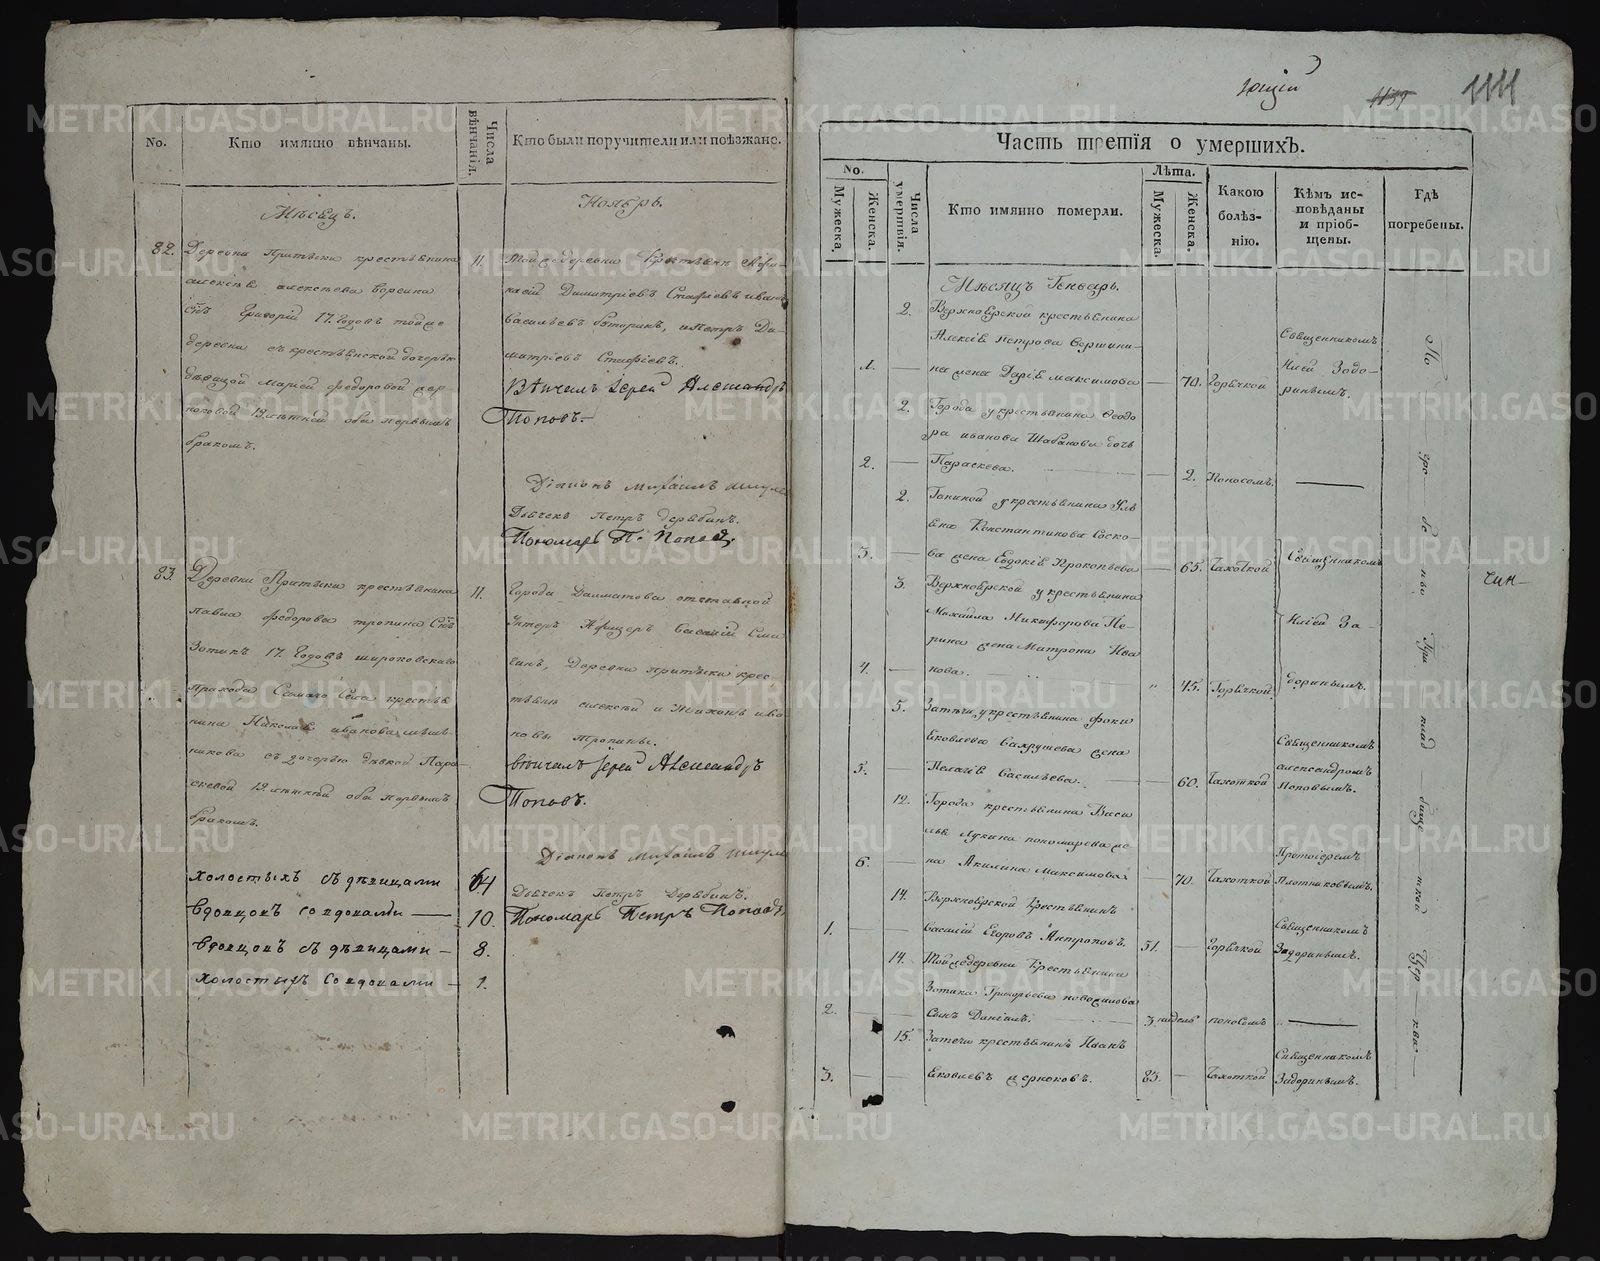 No.
Кто имянно вѣнчаны.
Числа вѣнчанія.
Кто были поручители или поѣзжане.
Мѣсяцъ.
Ноябрь.
82. Деревни Притыки крестьянина
Алексѣя Алексѣева
сынъ Григорій 17. Годовъ тойже
деревни съ крестьянской дочерью
дѣвицой Маріей Федоровой
19 лѣтной оба первымъ
бракомъ.
11. Той же деревни Крестьяне
Димитріевъ Стафіевъ Иванъ
Васильевъ Боторинъ, и Петръ Ди-
митріевъ Стафіевъ.
Вѣнчалъ Іерей Александръ
Поповъ.
Діаконъ Михаилъ
Дьячекъ Петръ Дерябинъ.
Пономарь П. Поповъ.
83. Деревни Притыки крестьянина
Павла Федорова Тропина сынъ
Зотикъ 17. Годовъ широковскаго
прихода Самаго Села крестья
нина Николая Иванова
никова съ дочерью дѣвкой Пара-
скевой 19 лѣтней оба первымъ
бракомъ.
11. Города Далматова отставной
Унтеръ Афицеръ Василій
Деревни Притыки крес-
тьяне Алексѣй и Тихонъ Ива-
новы Тропины.
вѣнчалъ Іерей Александръ
Поповъ.
Діаконъ Михаилъ
Дьячекъ Петръ Дерябинъ.
Пономарь Петръ Поповъ
холостыхъ съ дѣвицами 64
вдовцовъ со вдовами 10.
вдовцовъ съ дѣвицами 8.
холостыхъ со вдовами 1.
1111
Часть третія о умершихъ.
No.
Мужеска.
Женска.
Числа умертвія.
Кто имянно померли.
Лѣта.
Мужеска.
Женска.
Какою болѣз-нію.
Кѣмъ ис-повѣданы и пріоб-щены.
Гдѣ погребены.
Мѣсяцъ Генварь.
2. Верхоярской крестьянина
Алексѣя Петрова Вершини-
1. — на жена Дарія Максимова — 70. Горячкой
Священникомъ
Иліей Задо-
ринымъ.
2. Города у крестьянина Феодо
ра Иванова Шабанова дочь
2. — Параскева. — 2. Поносомъ. —
2. у крестьянина
Константинова Соско-
3. — ва жена Евдокія Прокопьева — 65. Чахоткой
Священникомъ
3. Верхоярской у крестьянина
Михайла Никифорова Пе-
рина жена Матрона Ива
4. — нова. 45. Горячкой
Иліей За-
доринымъ.
5. Затечи у крестьянина Фоки
Яковлева Вахрушева жена
5. — Пелагія Васильева. — 60. Чахоткой
Священникомъ
Александромъ
Поповымъ.
12. Города крестьянина Васи
лья Лукина Пономарева же-
6. — на Акилина Максимова — 70. Чахоткой
Протоіереемъ
Плотниковымъ.
14. Верхоярской Крестьянинъ
1. Василій Егоровъ Антроповъ. 51. — Горячкой
Священникомъ
Задоринымъ.
14. Той же деревни Крестьянина
Зотика Григорьева Новоселова
2. Сынъ Даніилъ. 3 недель поносомъ —
15. Затечи крестьянинъ Иванъ
3. — — Яковлевъ 83. — Чахоткой
Священникомъ
Задоринымъ.